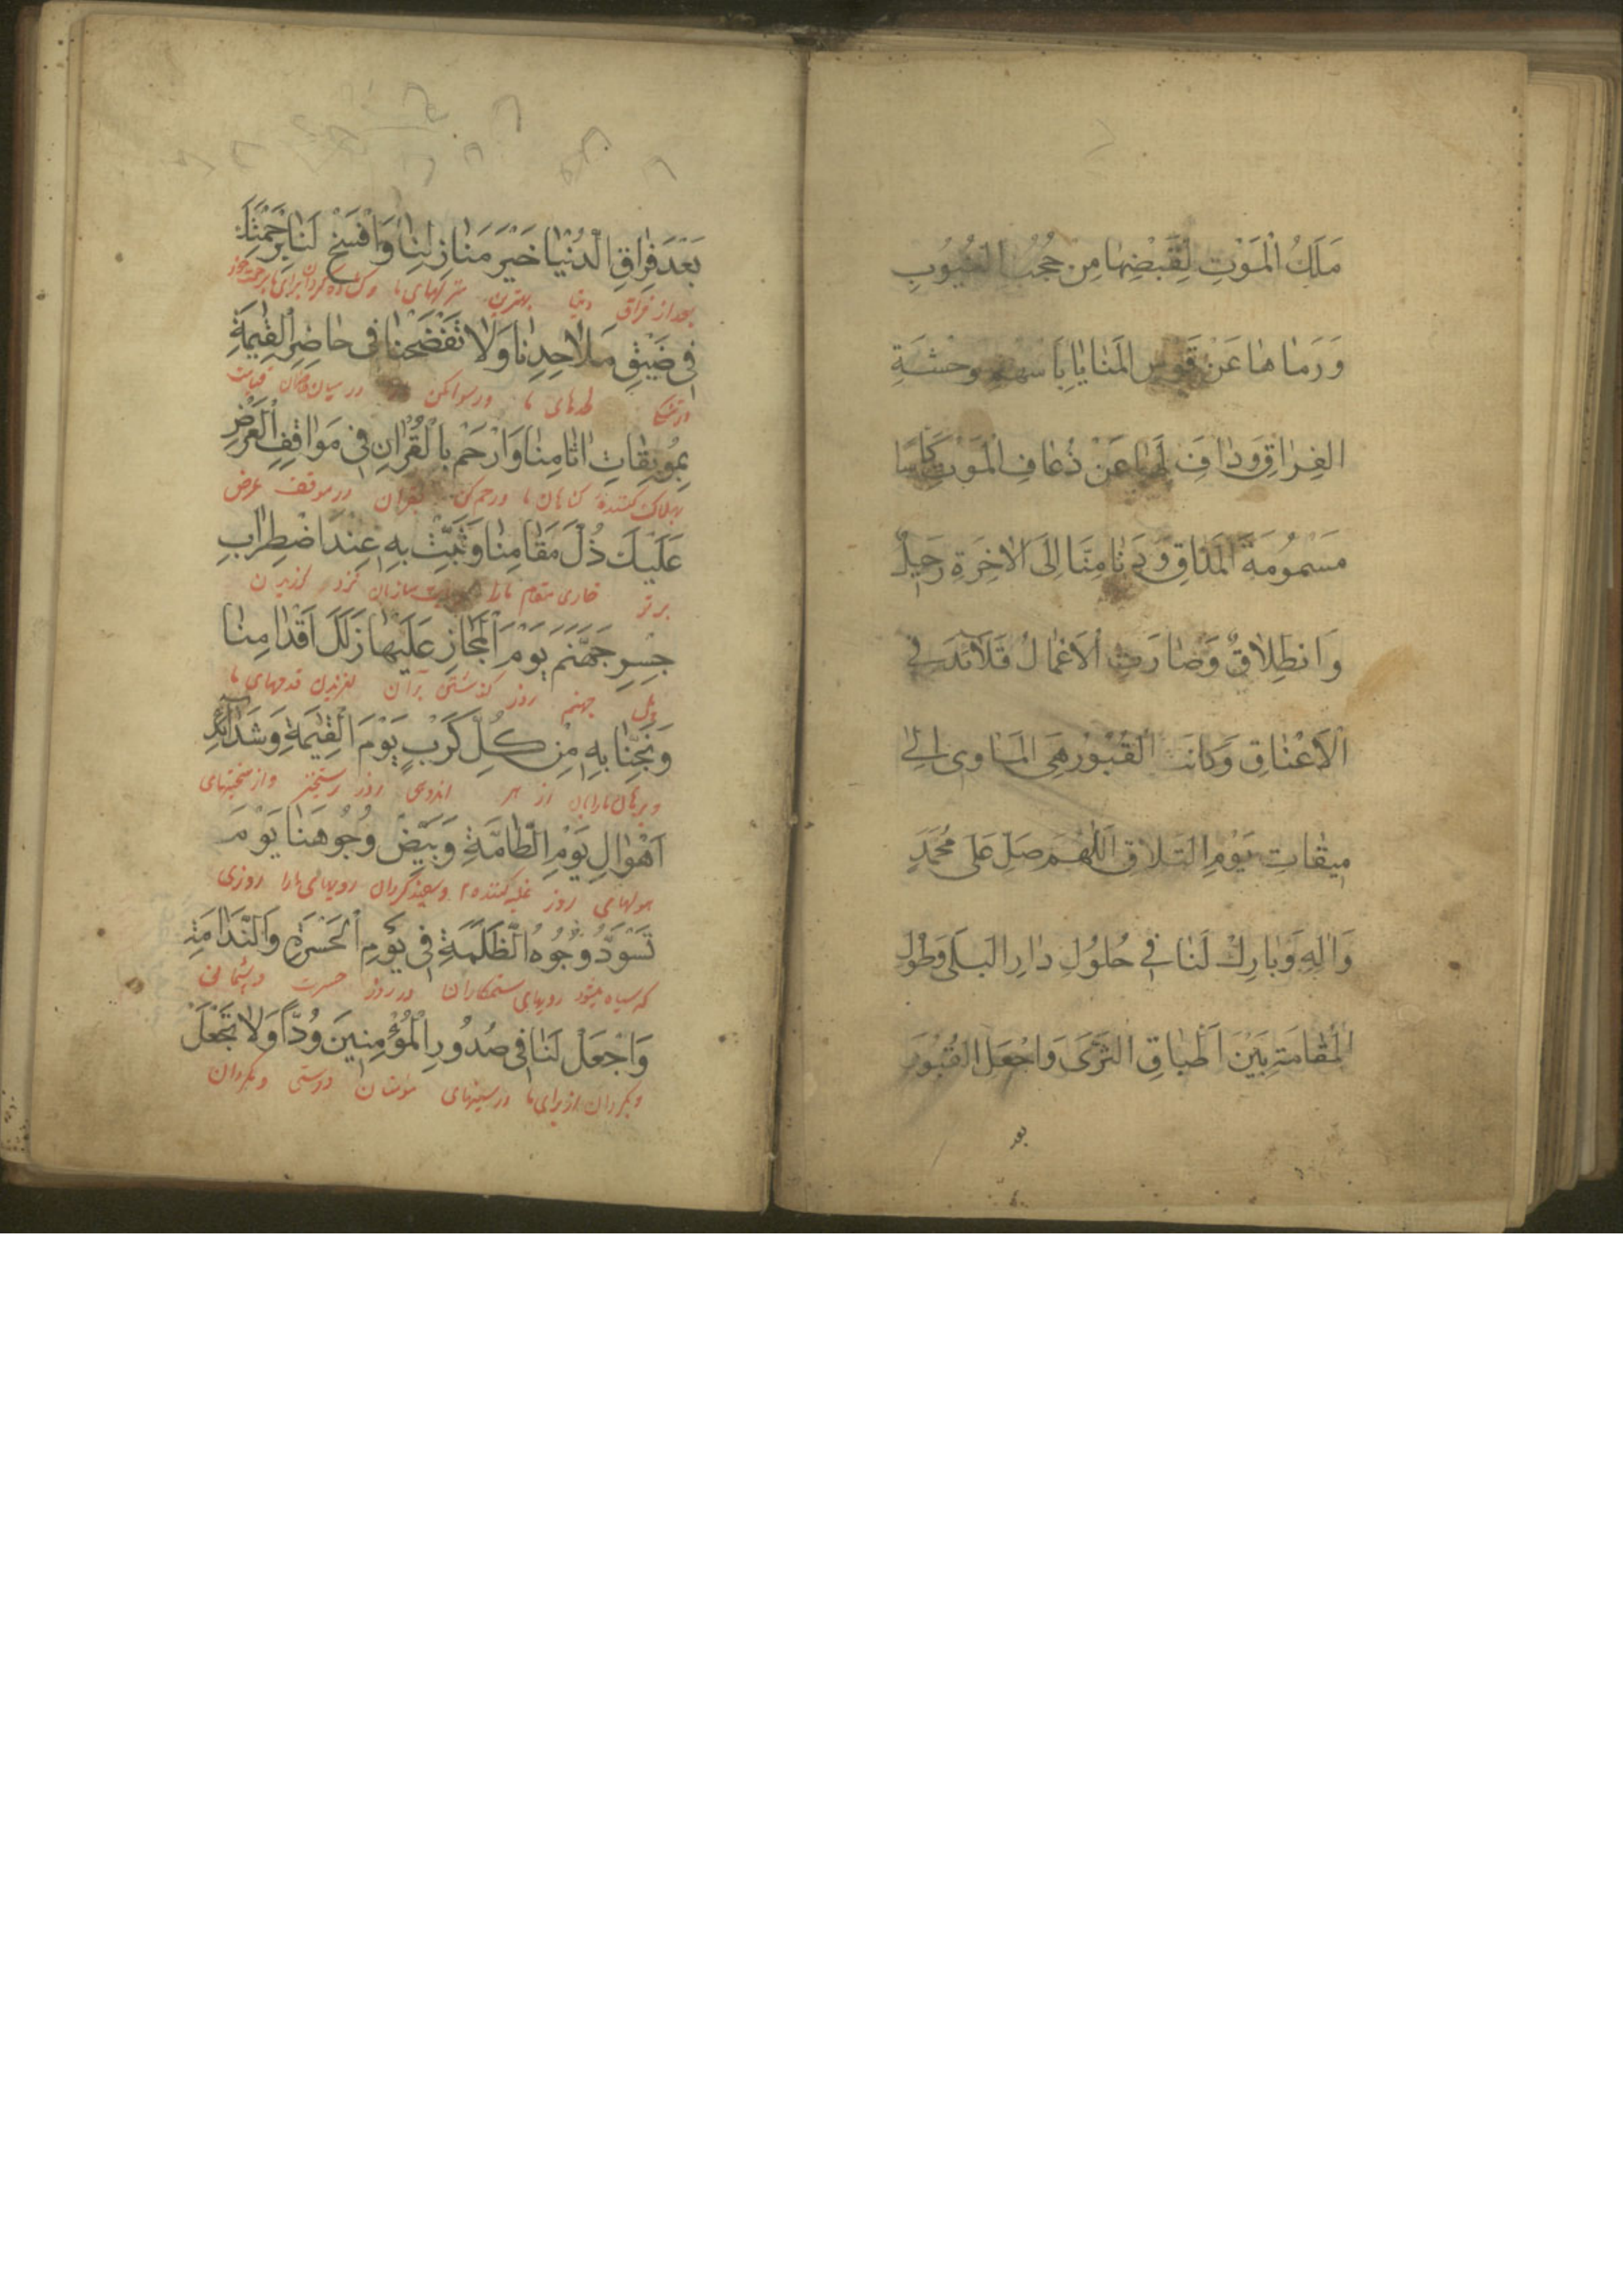 مَلَكُ الْمَوْتِ لِقَبْضِهٰا مِن حُجُبِ الغُيُوبِ
وَرَمٰاهٰا عَنْ قَوسِ المَنٰايٰا بِاَسْهُمِ وحْشَةِ
الفِرٰاقِ وَدٰافَ لَهٰا عَنْ ذُعٰافِ المَوْتِ كَاسًا
مَسْمُومَةَ المَذٰاقِ وَدَنٰا مِنّا اِلَى الاٰخِرَةِ رَحيلٌ
وَانطِلٰاقٌ وَصٰارَتِ الاَعْمٰالُ قَلاٰئدَ في
الاَعْنٰاقِ وَكانَتِ القُبُورُ هِيَ المَاوى اِلىٰ
ميقٰاتِ يَوْمِ التَلاقِ اَللّهُمَ صَلِ عَلى مُحَمَّدٍ
وَاٰلِهِ وَبٰارِكْ لَنٰا في حُلُولِ دٰارِ البَلَى وَطُولِ
المُقٰامَةِ بَيْنَ اَطْبٰاقِ الثَرَى وَاجْعَلِ القُبُورَ
بعد
بَعْدَ فِرٰاقِ الدُّنْيٰا خَيْرَ مَنٰازِلِنٰا وَافْسَحْ لَنٰا بِرَحْمَتِكَ
بعد از فراق دنیا بهترین منزلهای ما وکشاده کردان برای ما برحمت خود
فى ضَيْقِ مَلاٰحِدِنٰا وَلاٰ تَفْضَحْنٰا فى حٰاضِرِ الْقِيٰمَةِ
در تنکی لحدهای ما ورسوا مکن در میان حاضران قیامت
بِمُوبِقٰاتِ اٰثٰامِنٰا وَارْحَمْ بِالْقُرْاٰنِ فى مَوٰاقِفِ الْعَرْضِ
بهلاک کنندهٔ کناهان ما ورحم کن بقران در موقف عرض
عَلَيْكَ ذُلَّ مَقٰامِنٰا وَثَبِّتْ بِهِ عِنْدَ اضْطِرٰابِ
بر تو خاری مقام ما را وثابت ساز بان نزد لرزیدن
جِسْرِ جَهَنَّمَ يَوْمَ الْمَجٰازِ عَلَيْهٰا زَلَلَ اَقْدٰامِنٰا
پل جهنم روز کذشتن بر آن لغزیدن قدمهای ما
وَنَجِّنٰا بِهِ مِنْ كُلِّ كَرْبٍ يَوْمَ الْقِيٰمَةِ وَشَدٰائِدِ
وبرهان ما را بان از هر اندوهی روز رستخیز واز سختیهای
اَهْوٰالِ يَوْمِ الطّٰامَّةِ وَبَيِّضْ وُجُوهَنٰا يَوْمَ
هولهای روز غلبه کننده وسفید کردان رویهای ما را روزی
تَسْوَدُّ وُجُوهُ الظَّلَمَةِ فى يَوْمِ الْحَسْرَةِ وَالنَّدٰامَةِ
که سیاه میشود رویهای ستمکاران در روز حسرت وپشیمانی
وَاجْعَلْ لَنٰا فى صُدُورِ الْمُؤْمِنينَ وُدّاً وَلاٰ تَجْعَلْ
وبکردان از برای ما در سینهای مومنان دوستی ومکردان